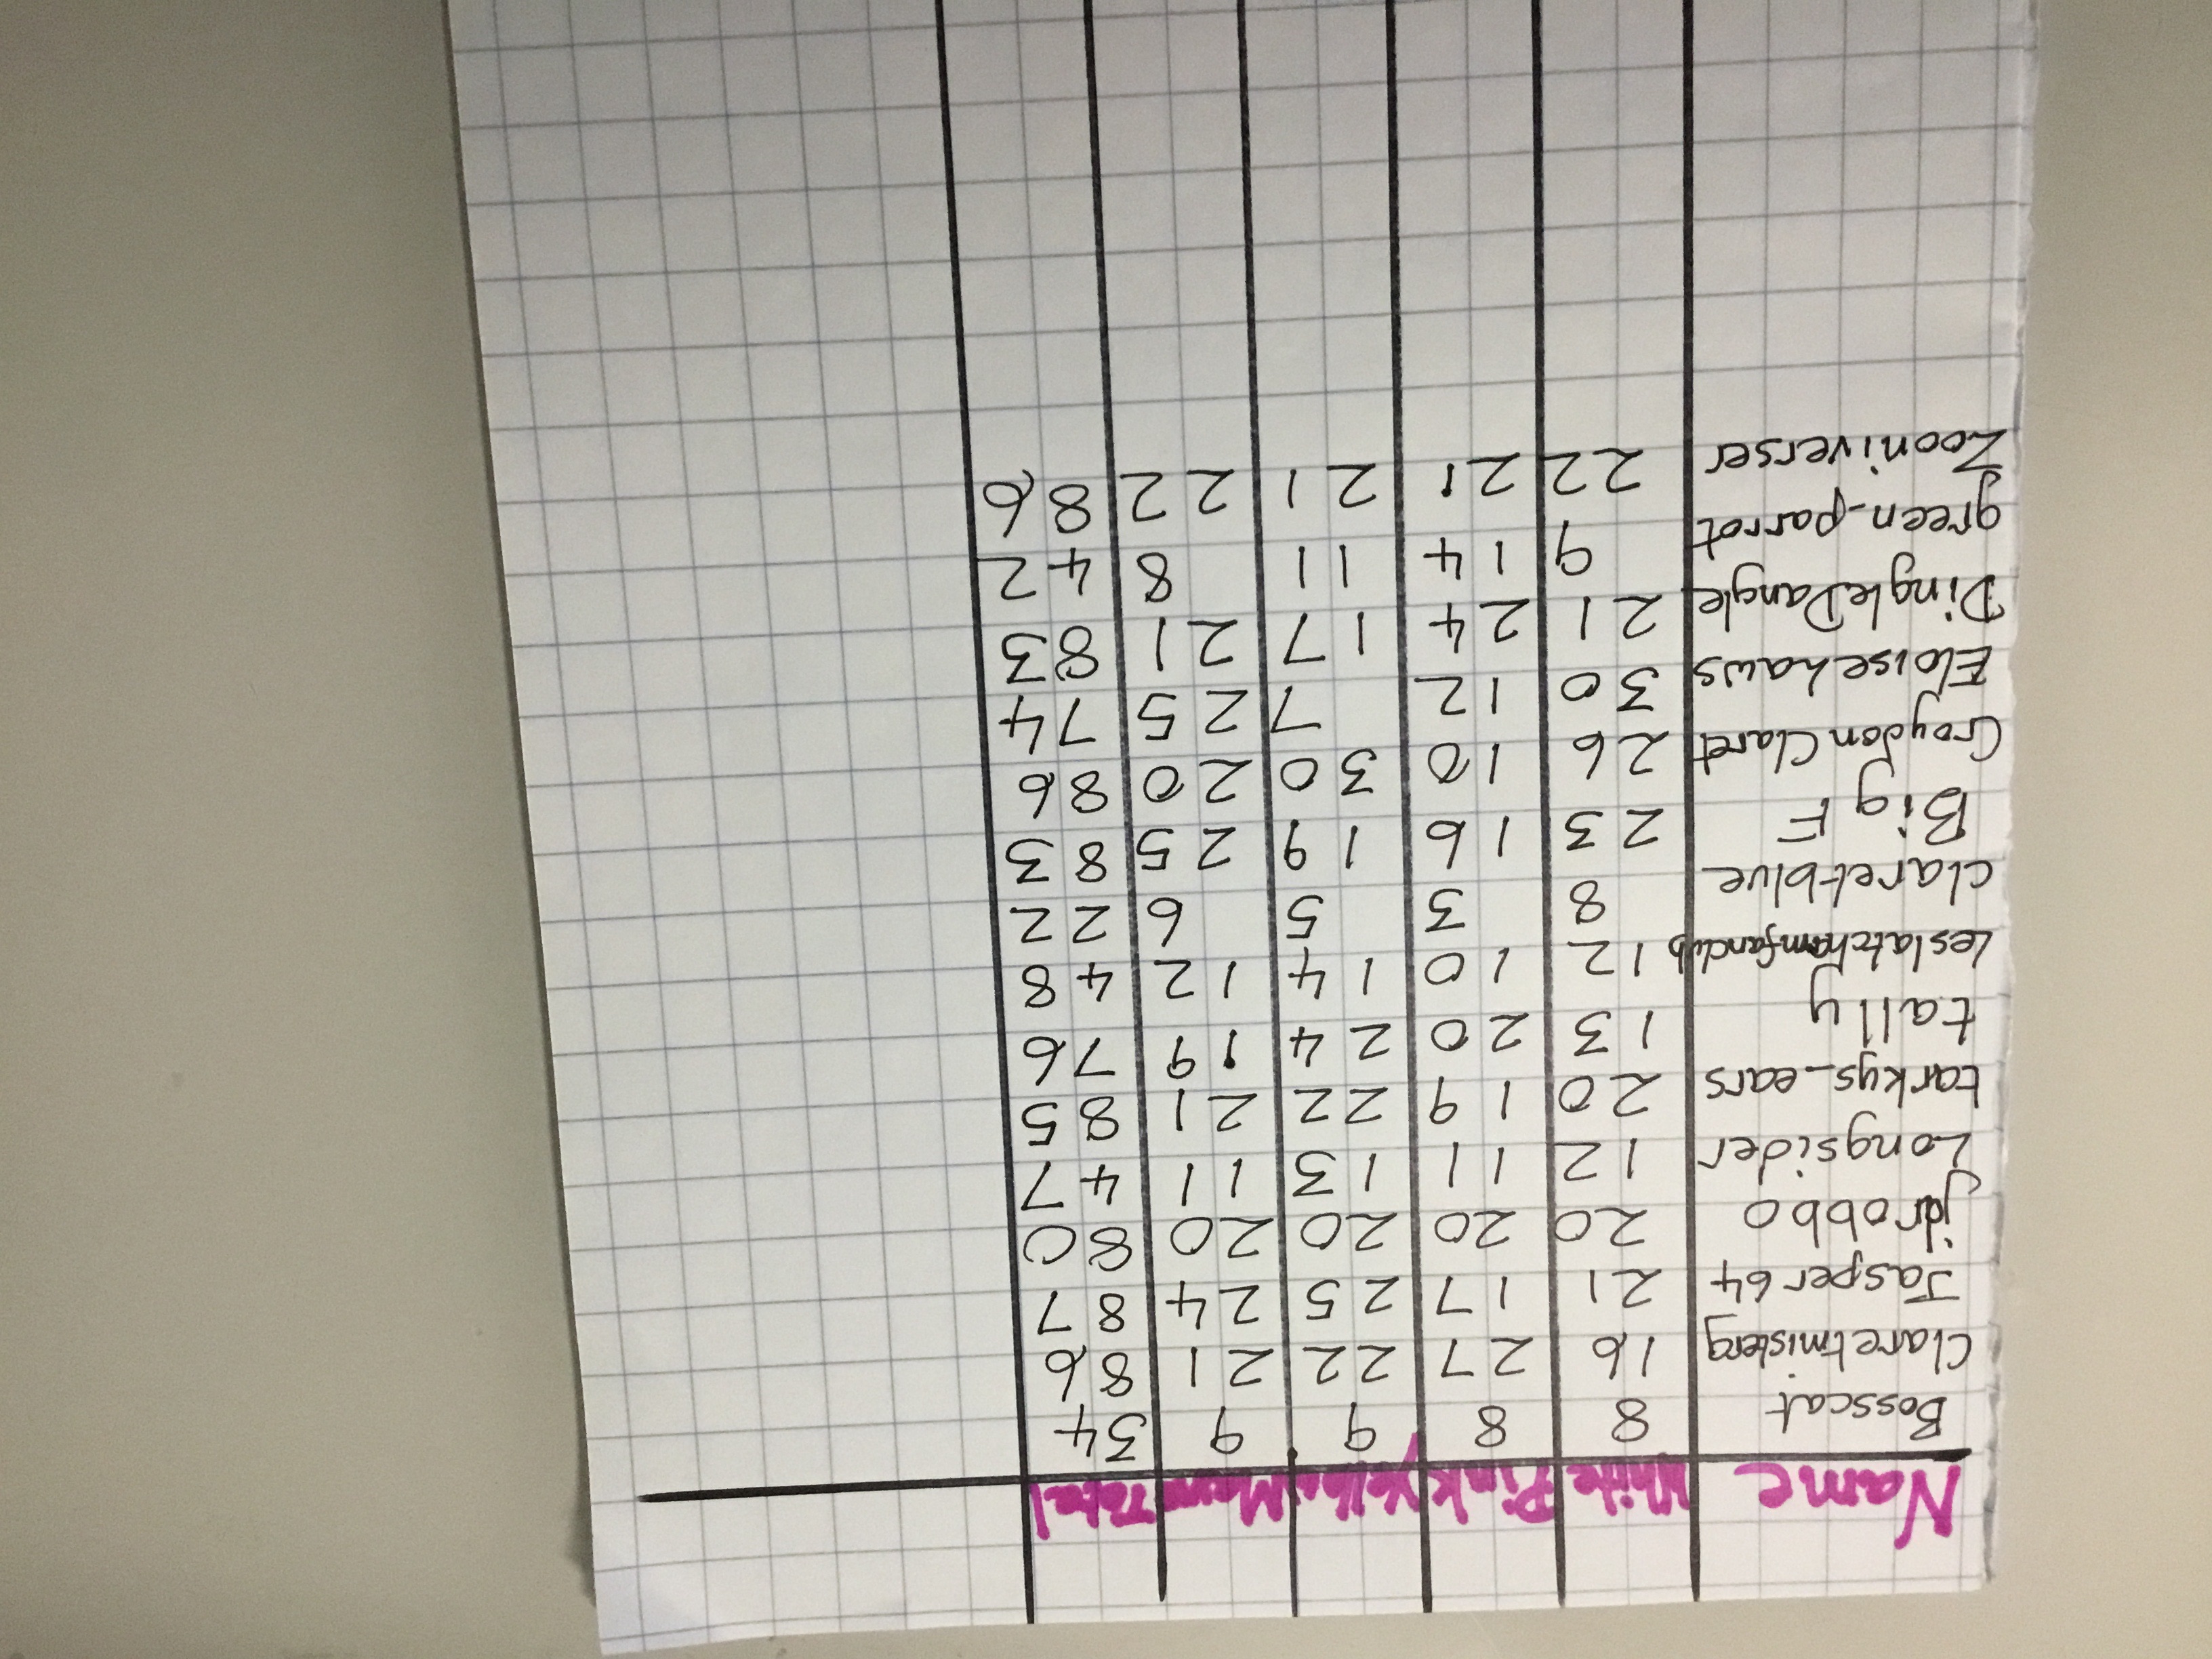 Name White Pink Yellow Mauve Total
Bosscat 8 8 9 9 34
Claretmisterg 16 27 22 21 86
Jasper64 21 17 25 24 87
jdrobbo 20 20 20 20 80
Longsider 12 11 13 11 47
tarkys_ears 20 19 22 21 85
tally 13 20 24 19 76
Leslatchamfanclub 12 10 14 12 48
claretblue 8 3 5 6 22
Big F 23 16 19 25 83
Croydon Claret 26 10 30 20 86
Eloisehaws 30 12 7 25 74
DingleDangle 21 24 17 21 83
green_parrot 9 14 11 8 42
Zooniverser 22 21 21 22 86